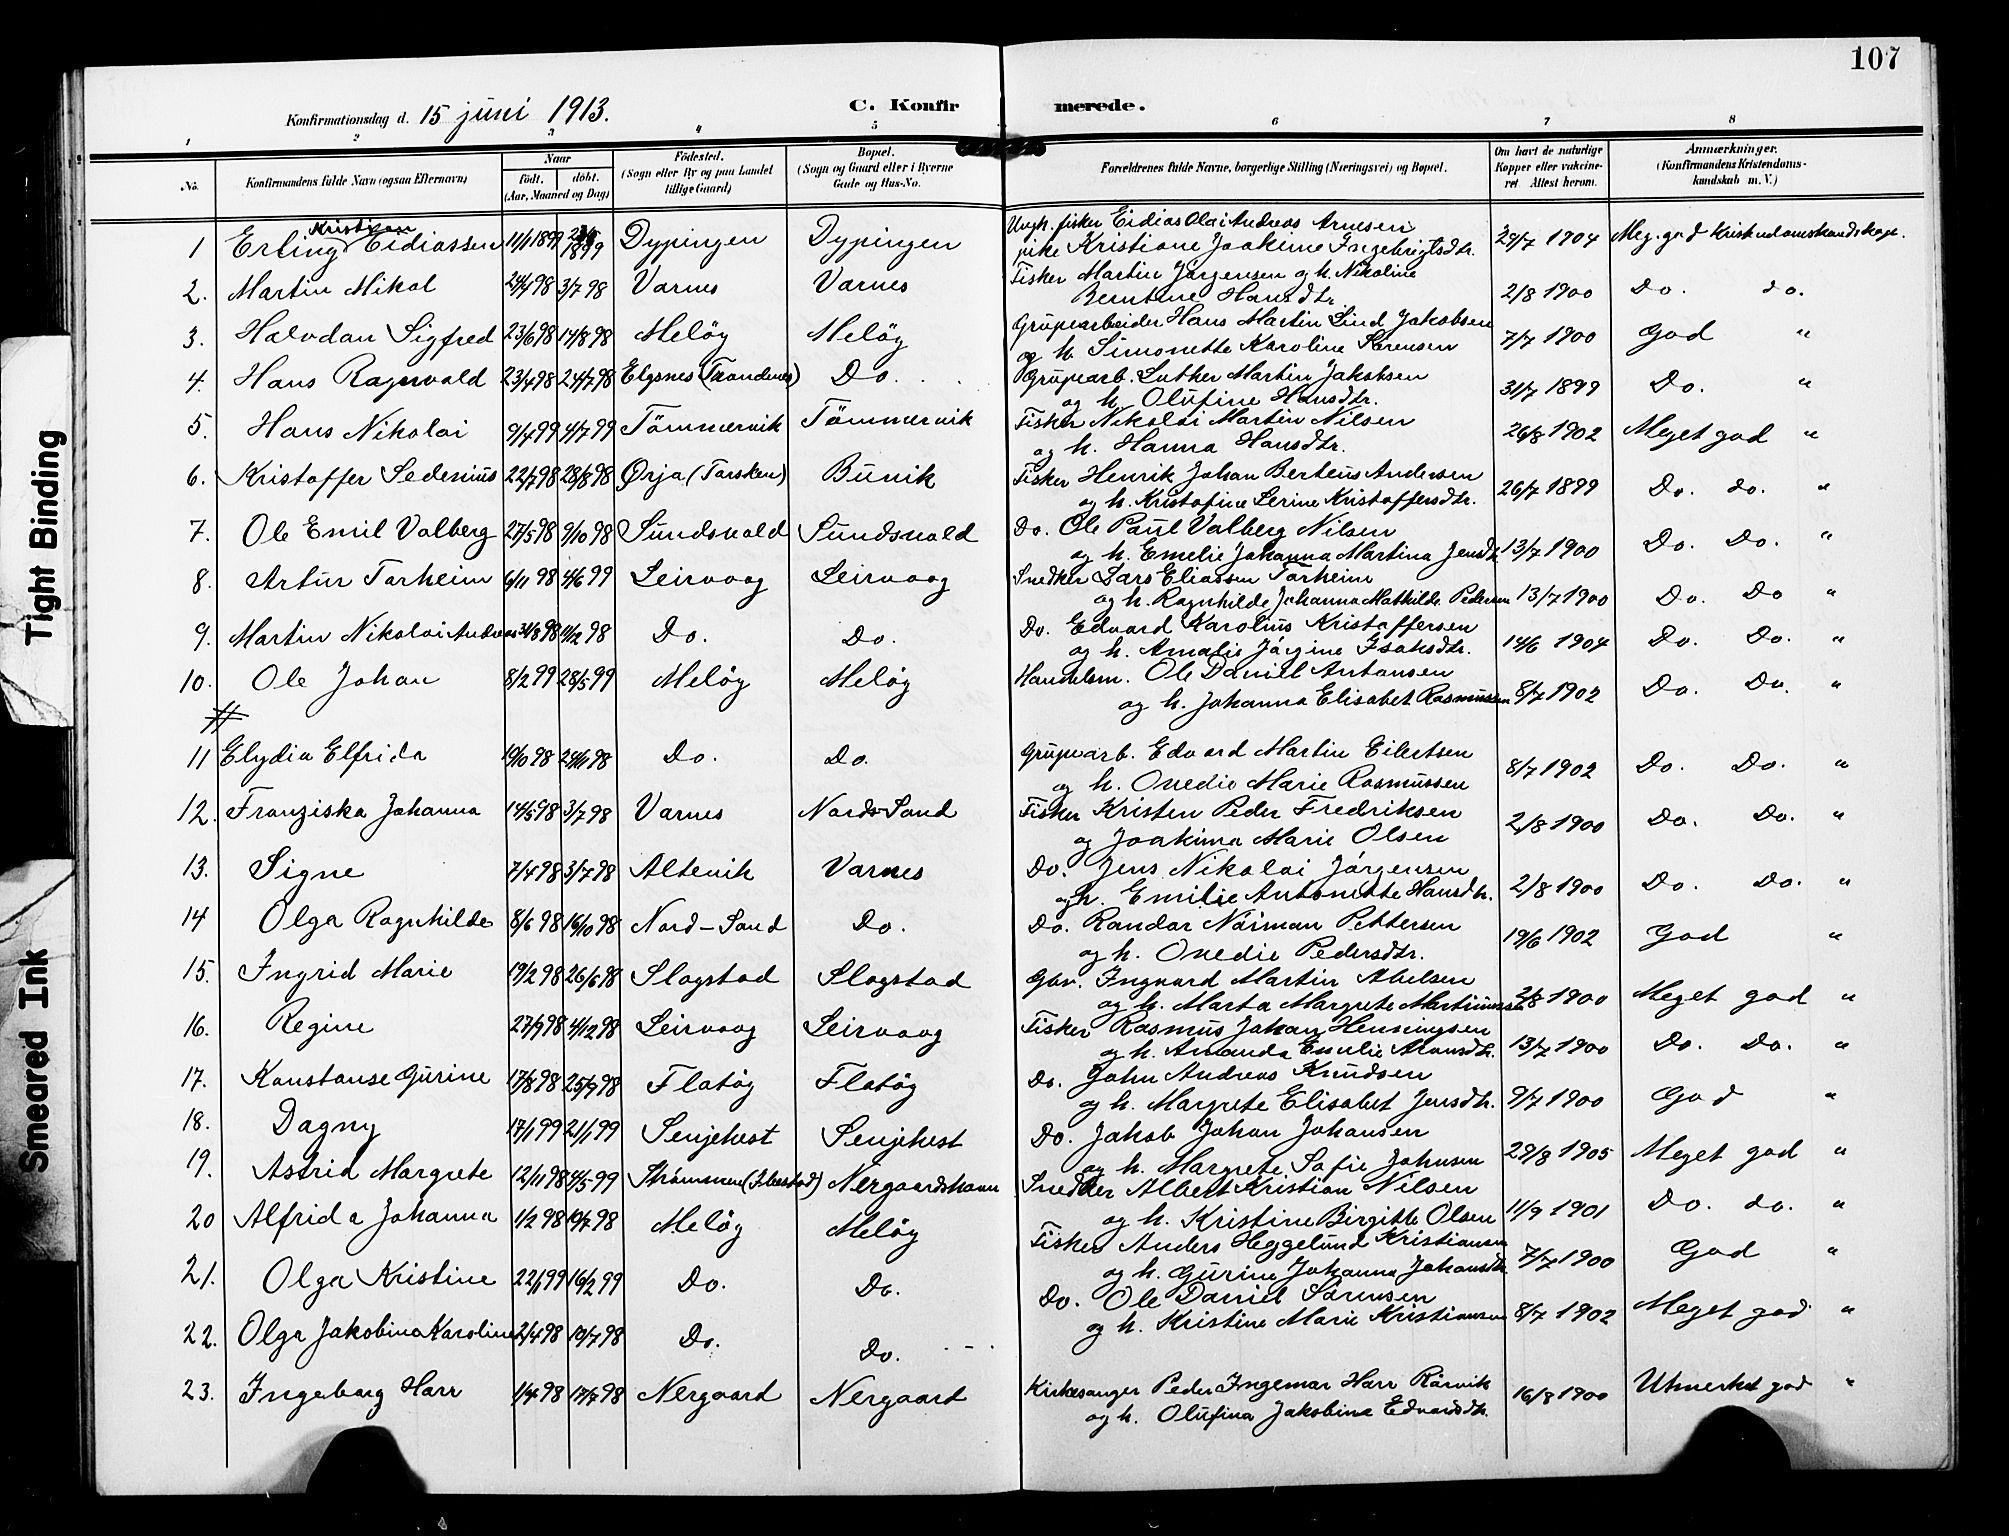 107
Konfirmationsdag d. 15 juni 1913.
C. Konfir
merede.
1 2 3 4 5 6 7 8
No. Konfirmandens fulde Navn (ogsaa Efternavn) Naar født. døbt. (Aar, Maaned og Dag) Fødested. (Sogn eller By og paa Landet tillige Gaard) Bopæl. (Sogn og Gaard eller i Byerne Gade og Hus-No. Forældrenes fulde Navne, borgerlige Stilling (Næringsvei) og Bopæl. Om havt de naturlige Kopper eller vakcineret Attest herom. Anmærkninger. (Konfirmandens Kristendomskundskab m. V.)
1 Erling Kristian Eidiassen 11/1 1899 1899 Dypingen Dypingen Ungk. fisker Eidias Olai Andreas Arnesen
pike Kristiane Joakime Ingebrigtsdtr. 29/7 1904 Meg. god Kristendomskundskap.
2. Martin Mikal 24/4 98 3/7 98 Varnes Varnes Fisker Martin Jørgensen og h. Nikoline
Berntine Hansdtr. 2/8 1900 Do. do.
3. Halvdan Sigfred 23/6 98 14/8 98 Meløy Meløy Grubearbeider Hans Martin Lind Jakobsen
og h. Simonette Karoline Sørensen 7/7 1900 God "
4. Hans Ragnvald 23/4 98 24/7 98 Elgsnes (Trondenes) Do. Grubearb. Luther Martin Jakobsen
og h. Olufine Hansdtr. 31/7 1899 Do. "
5. Hans Nikolai 9/4 99 4/7 99 Tømmervik Tømmervik Fisker Nikolai Martin Nilsen
og h. Hanna Hansdtr. 26/8 1902 Meget god "
6. Kristoffer Sedenius 22/7 98 28/8 98 Ørja (Torsken) Bunik Fisker Henrik Johan Berteus Andersen
og h. Kristofine Serine Kristoffersdtr. 26/7 1899 Do. do. "
7. Ole Emil Valberg 27/5 98 9/10 98 Sundsvold Sundsvold Do. Ole Paul Valberg Nilsen
og h. Emelie Johanna Martina Jensdtr. 13/7 1900 Do. Do. "
8. Artur Torheim 6/11 98 4/6 99 Leirvaag Leirvaag Snedker Lars Eliassen Torheim
og h. Ragnhilde Johanna Mathilde Pedersen 13/7 1900 Do. Do "
9. Martin Nikolai Andreas 31/8 98 11/12 98 Do. Do. Do. Edvard Karolius Kristoffersen
og h. Amalie Jørgine Isaksdtr. 14/6 1904 Do. Do. "
10. Ole Johan 8/2 99 28/5 99 Meløy Meløy Handelsm. Ole Daniel Antonsen
og h. Johanna Elisabet Rasmussen 8/7 1902 Do. Do. "
11 Elydia Elfrida 19/10 98 24/11 98 Do. Do. Grubearb. Edvard Martin Eilertsen
og h. Onedie Marie Rasmussen 8/7 1902 Do. Do. "
12. Franziska Johanna 14/5 98 3/7 98 Varnes Nord-Sand Fisker Kristen Peder Fredriksen
og Joakima Marie Olsen 2/8 1900 Do. Do. "
13. Signe 7/4 98 3/7 98 Altevik Varnes Do. Jens Nikolai Jørgensen
og h. Emilie Antonette Hansdtr. 2/8 1900 Do. Do. "
14 Olga Ragnhilde 8/6 98 16/10 98 Nord-Sand Do. Do. Randor Norman Pettersen
og h. Onedie Pedersdtr. 19/6 1902 God "
15. Ingrid Marie 19/2 98 26/6 98 Slagstad Slagstad Gbr. Ingvard Martin Abelsen
og h. Marta Margrete Martinussen 2/8 1900 Meget god "
16. Regine 27/9 98 4/12 98 Leirvaag Leirvaag Fisker Rasmus Johan Henningsen
og h. Amanda Emelie Aronsdtr. 13/7 1900 Do. Do. "
17. Konstanse Gurine 17/8 98 25/9 98 Flatøy Flatøy Do. John Andreas Knudsen
og h. Margrete Elisabet Jensdtr. 9/7 1900 God "
18. Dagny 17/1 99 21/1 99 Senjehest Senjehest Do. Jakob Johan Johansen
og h. Margrete Sofie Johnsen 29/8 1905 Meget god "
19. Astrid Margrete 12/11 98 4/5 99 Strømmen (Ibestad) Nergaardshavn Snedker Albert Kristian Nilsen
og h. Kristine Birgitte Olsen 11/9 1901 Do. do. "
20 Alfrida Johanna 1/2 98 10/7 98 Meløy Meløy Fisker Anders Heggelund Kristiansen
og h. Gurine Johanna Johansdtr. 7/7 1900 God "
21. Olga Kristine 22/1 99 16/2 99 Do. Do. Do. Ole Daniel Sørensen
og h. Kristine Marie Kristiansen 8/7 1902 Meget god "
22. Olga Jakobina Karoline 2/4 98 10/7 98 Do. Do.
23. Ingeborg Harr 1/4 98 17/7 98 Nergaard Nergaard Kirkesanger Peder Ingemar Harr Rørvik
og h. Olufina Jakobine Edvardsdtr. 16/8 1900 Utmerket god "
Tight Binding
Smeared Ink